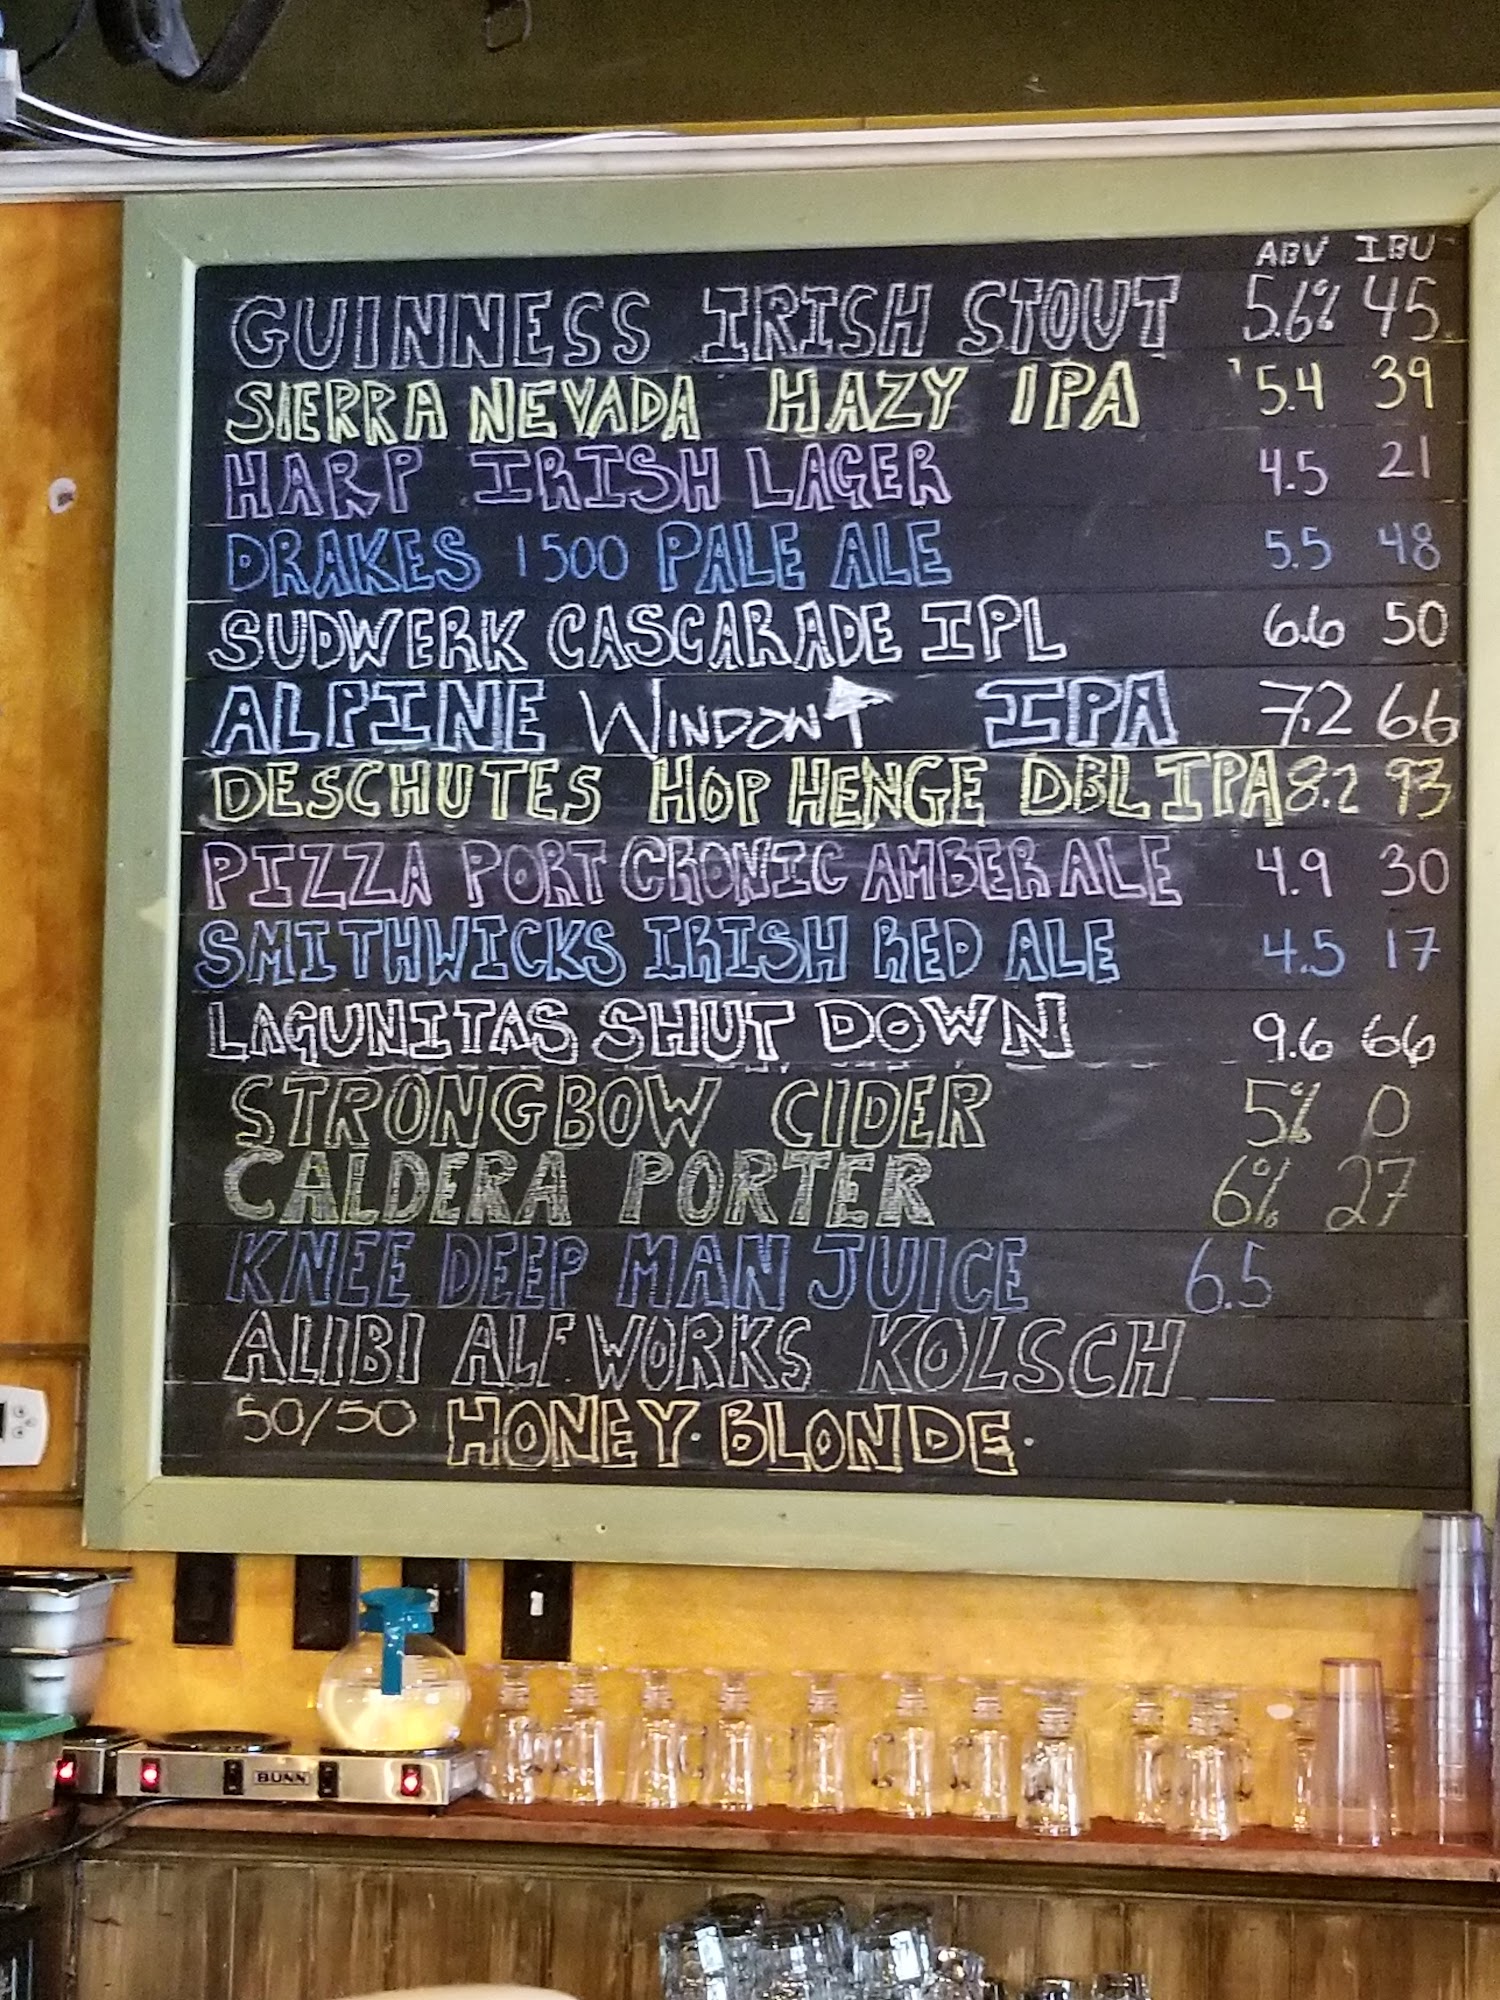 ABV IBU
GUINNESS IRISH STOUT 5.6% 45
SIERRA NEVADA HAZY IPA 5.4 39
HARP IRISH LAGER 4.5 21
DRAKES 1500 PALE ALE 5.5 48
SUDWERK CASCARADE IPL 6.6 50
ALPINE WINDOW ↑ IPA 7.2 66
DESCHUTES HOP HENGE DBL IPA 8.2 93
PIZZA PORT CRONIC AMBER ALE 4.9 30
SMITHWICKS IRISH RED ALE 4.5 17
LAGUNITAS SHUT DOWN 9.6 66
STRONGBOW CIDER 5% 0
CALDERA PORTER 6% 27
KNEE DEEP MAN JUICE 6.5
ALIBI ALE WORKS KOLSCH
50/50 HONEY BLONDE
BUNN